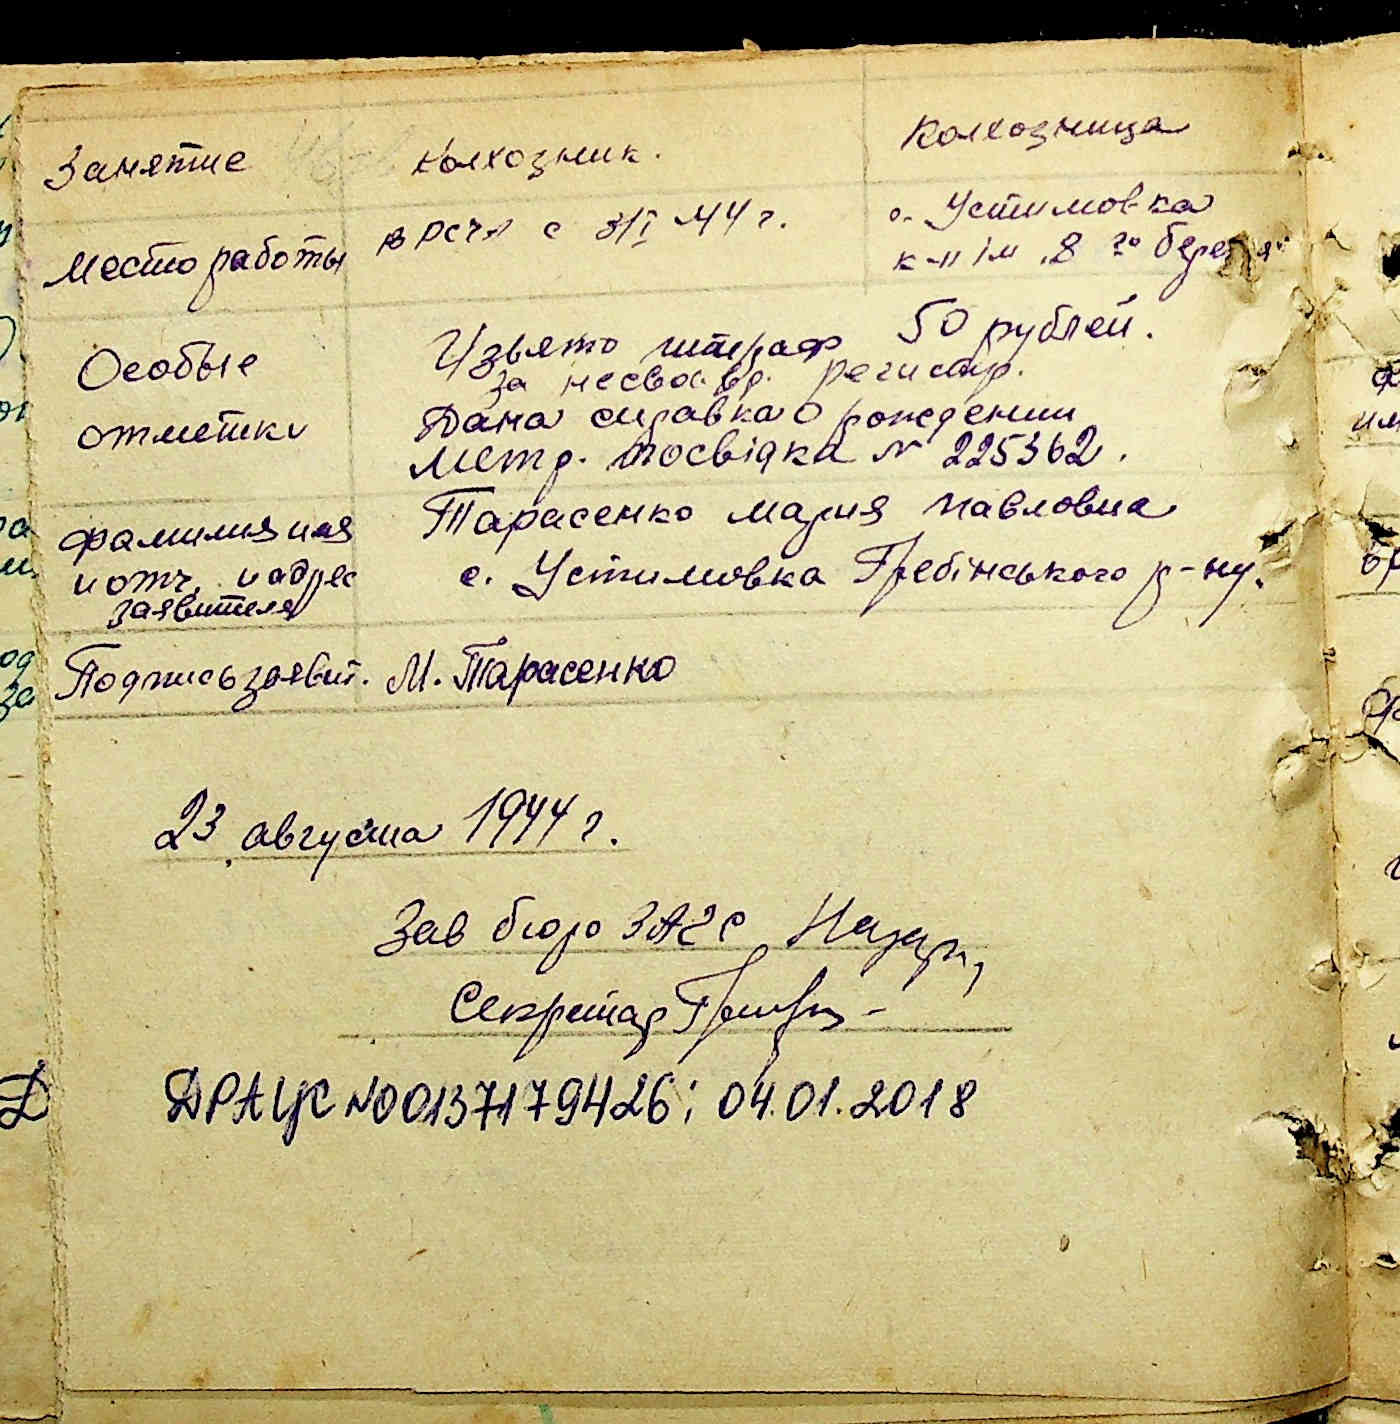 Занятие колхозник. Колхозница
Место работы в РСЧА с 3/I 44 г. с. Устимовка
к-п ім. 8 го березня
Особые Изьято штраф 50 рублей.
за несвоевр. регистр.
отметки Дана справка о рождении
Метр. посвідка № 225362.
Фамилия имя Тарасенко Мария Павловна
и отч. и адрес с. Устимовка Гребінського р-ну.
заявителя
Подпись заявит. М. Тарасенко
23 августа 1944 г.
Зав бюро ЗАГС
Секретар
ДРАЦС №00137179426; 04.01.2018